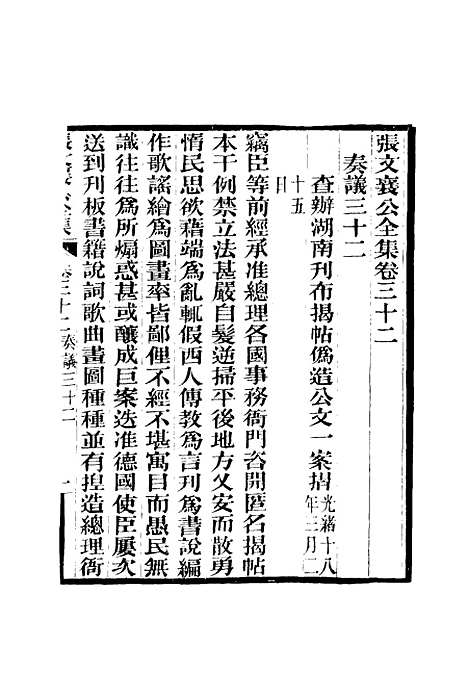 張文襄公全集卷三十二
奏議三十二
查辦湖南刊布揭帖僞造公文一案摺光緒十八年三月二
十五
日
竊臣等前經承准總理各國事務衙門咨開匿名揭帖
本干例禁立法甚嚴自髮逆掃平後地方乂安而散勇
惰民思欲藉端爲亂輒假西人傳教爲言刊爲書說編
作歌謠繪爲圖畫率皆鄙俚不經不堪寓目而愚民無
識往往爲所煽惑甚或釀成巨案迭准德國使臣屢次
送到刊板書籍說詞歌曲畫圖種種並有捏造總理衙
張文襄公全集 卷三十二 奏議三十二 一